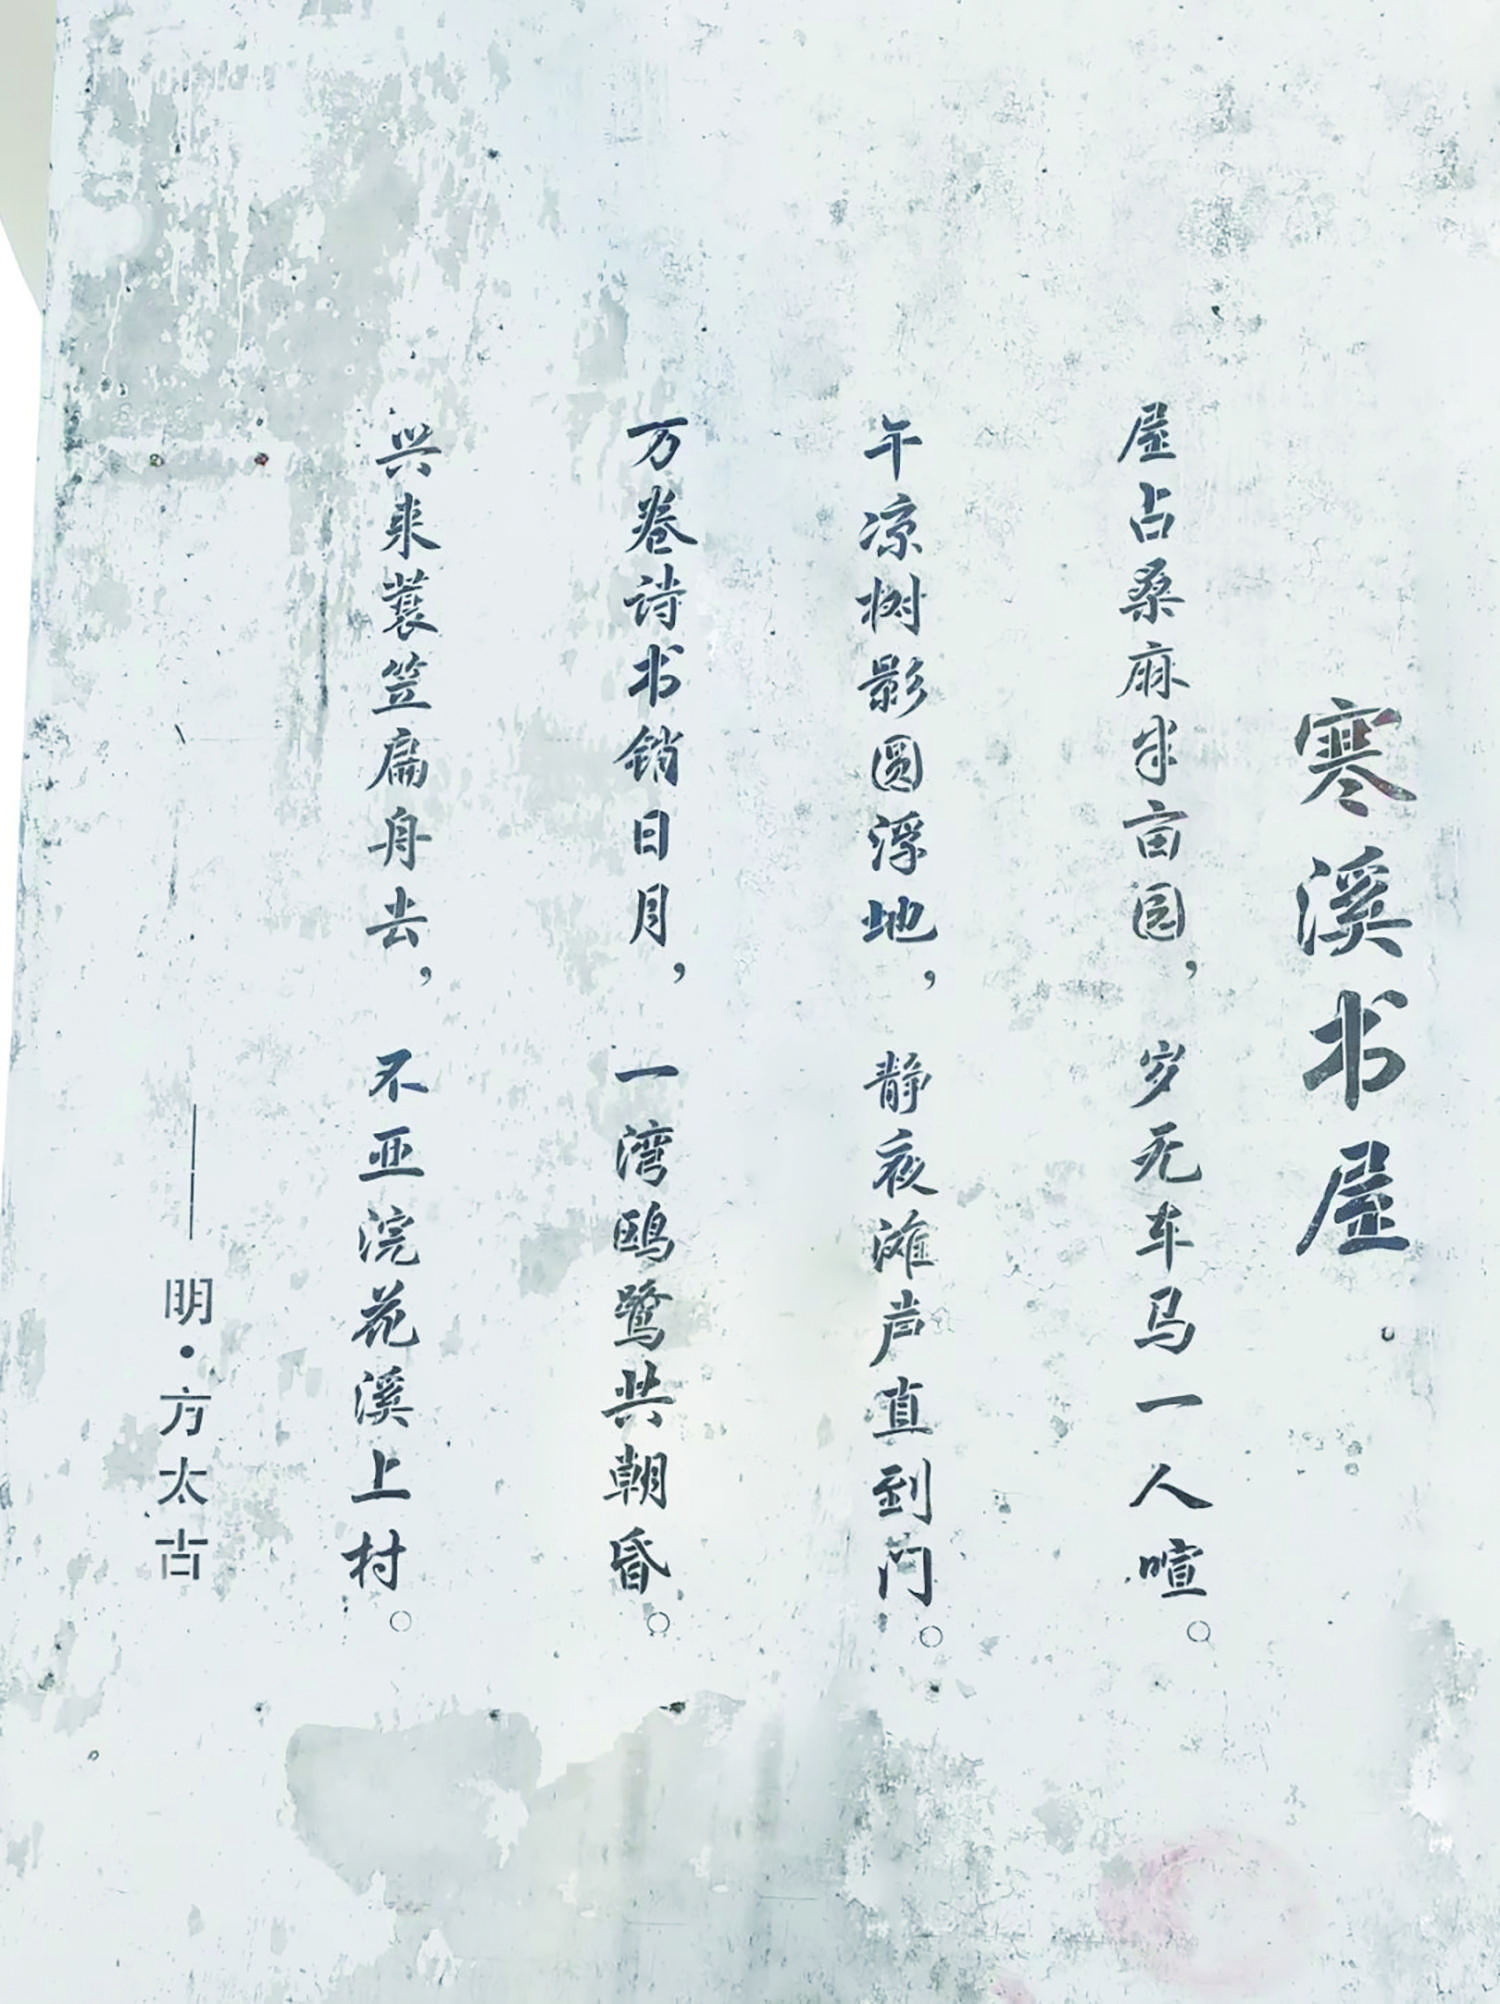 寒溪书屋
屋占桑麻半亩园，岁无车马一人喧。
午凉树影圆浮地，静夜滩声直到门。
万卷诗书销日月，一湾鸥鹭共朝昏。
兴来蓑笠扁舟去，不亚浣花溪上村。
——明·方太古